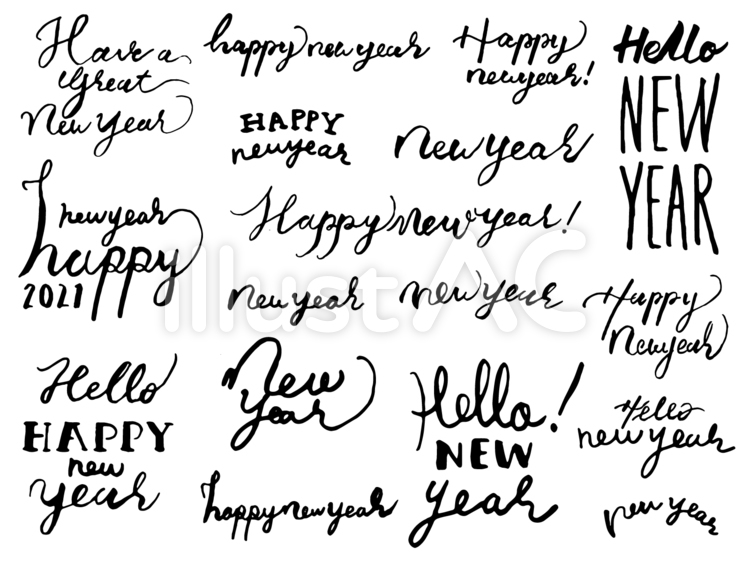 Have a
Great
New Year
happy new year
Happy
newyear!
Hello
NEW
YEAR
HAPPY
newyear
New year
new year
happy
2021
Happy new year!
new year
new year
Happy
Newyear
Hello
HAPPY
new
year
New
year
Hello!
NEW
year
Hello
new year
happy new year
new year
IllustAC